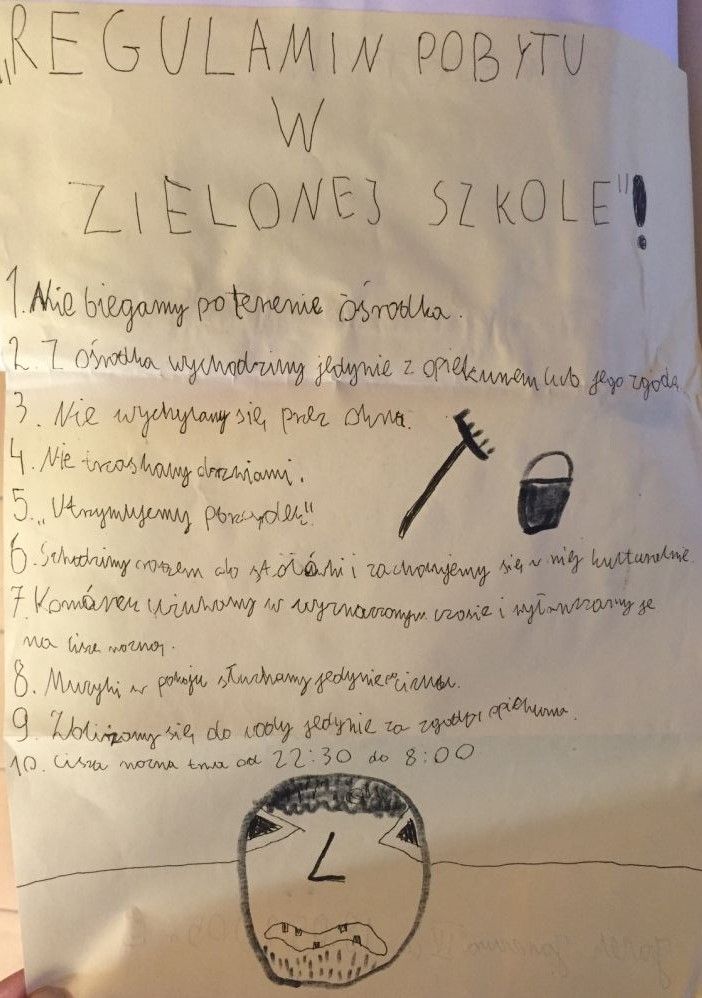 „REGULAMIN POBYTU
W
ZIELONEJ SZKOLE"!
1. Nie biegamy po terenie ośrodka.
2. Z ośrodka wychodzimy jedynie z opiekunem lub jego zgodą.
3. Nie wychylamy się przez okna.
4. Nie trzaskamy drzwiami.
5. „Utrzymujemy porządek"
6. Schodzimy razem do stołówki i zachowujemy się w niej kulturalnie.
7. Komórek używamy w wyznaczonym czasie i wyłanczamy je
na ciszę nocną.
8. Muzyki w pokoju słuchamy jedynie cicho.
9. Zbliżamy się do wody jedynie za zgodą opiekuna.
10. Cisza nocna trwa od 22:30 do 8:00